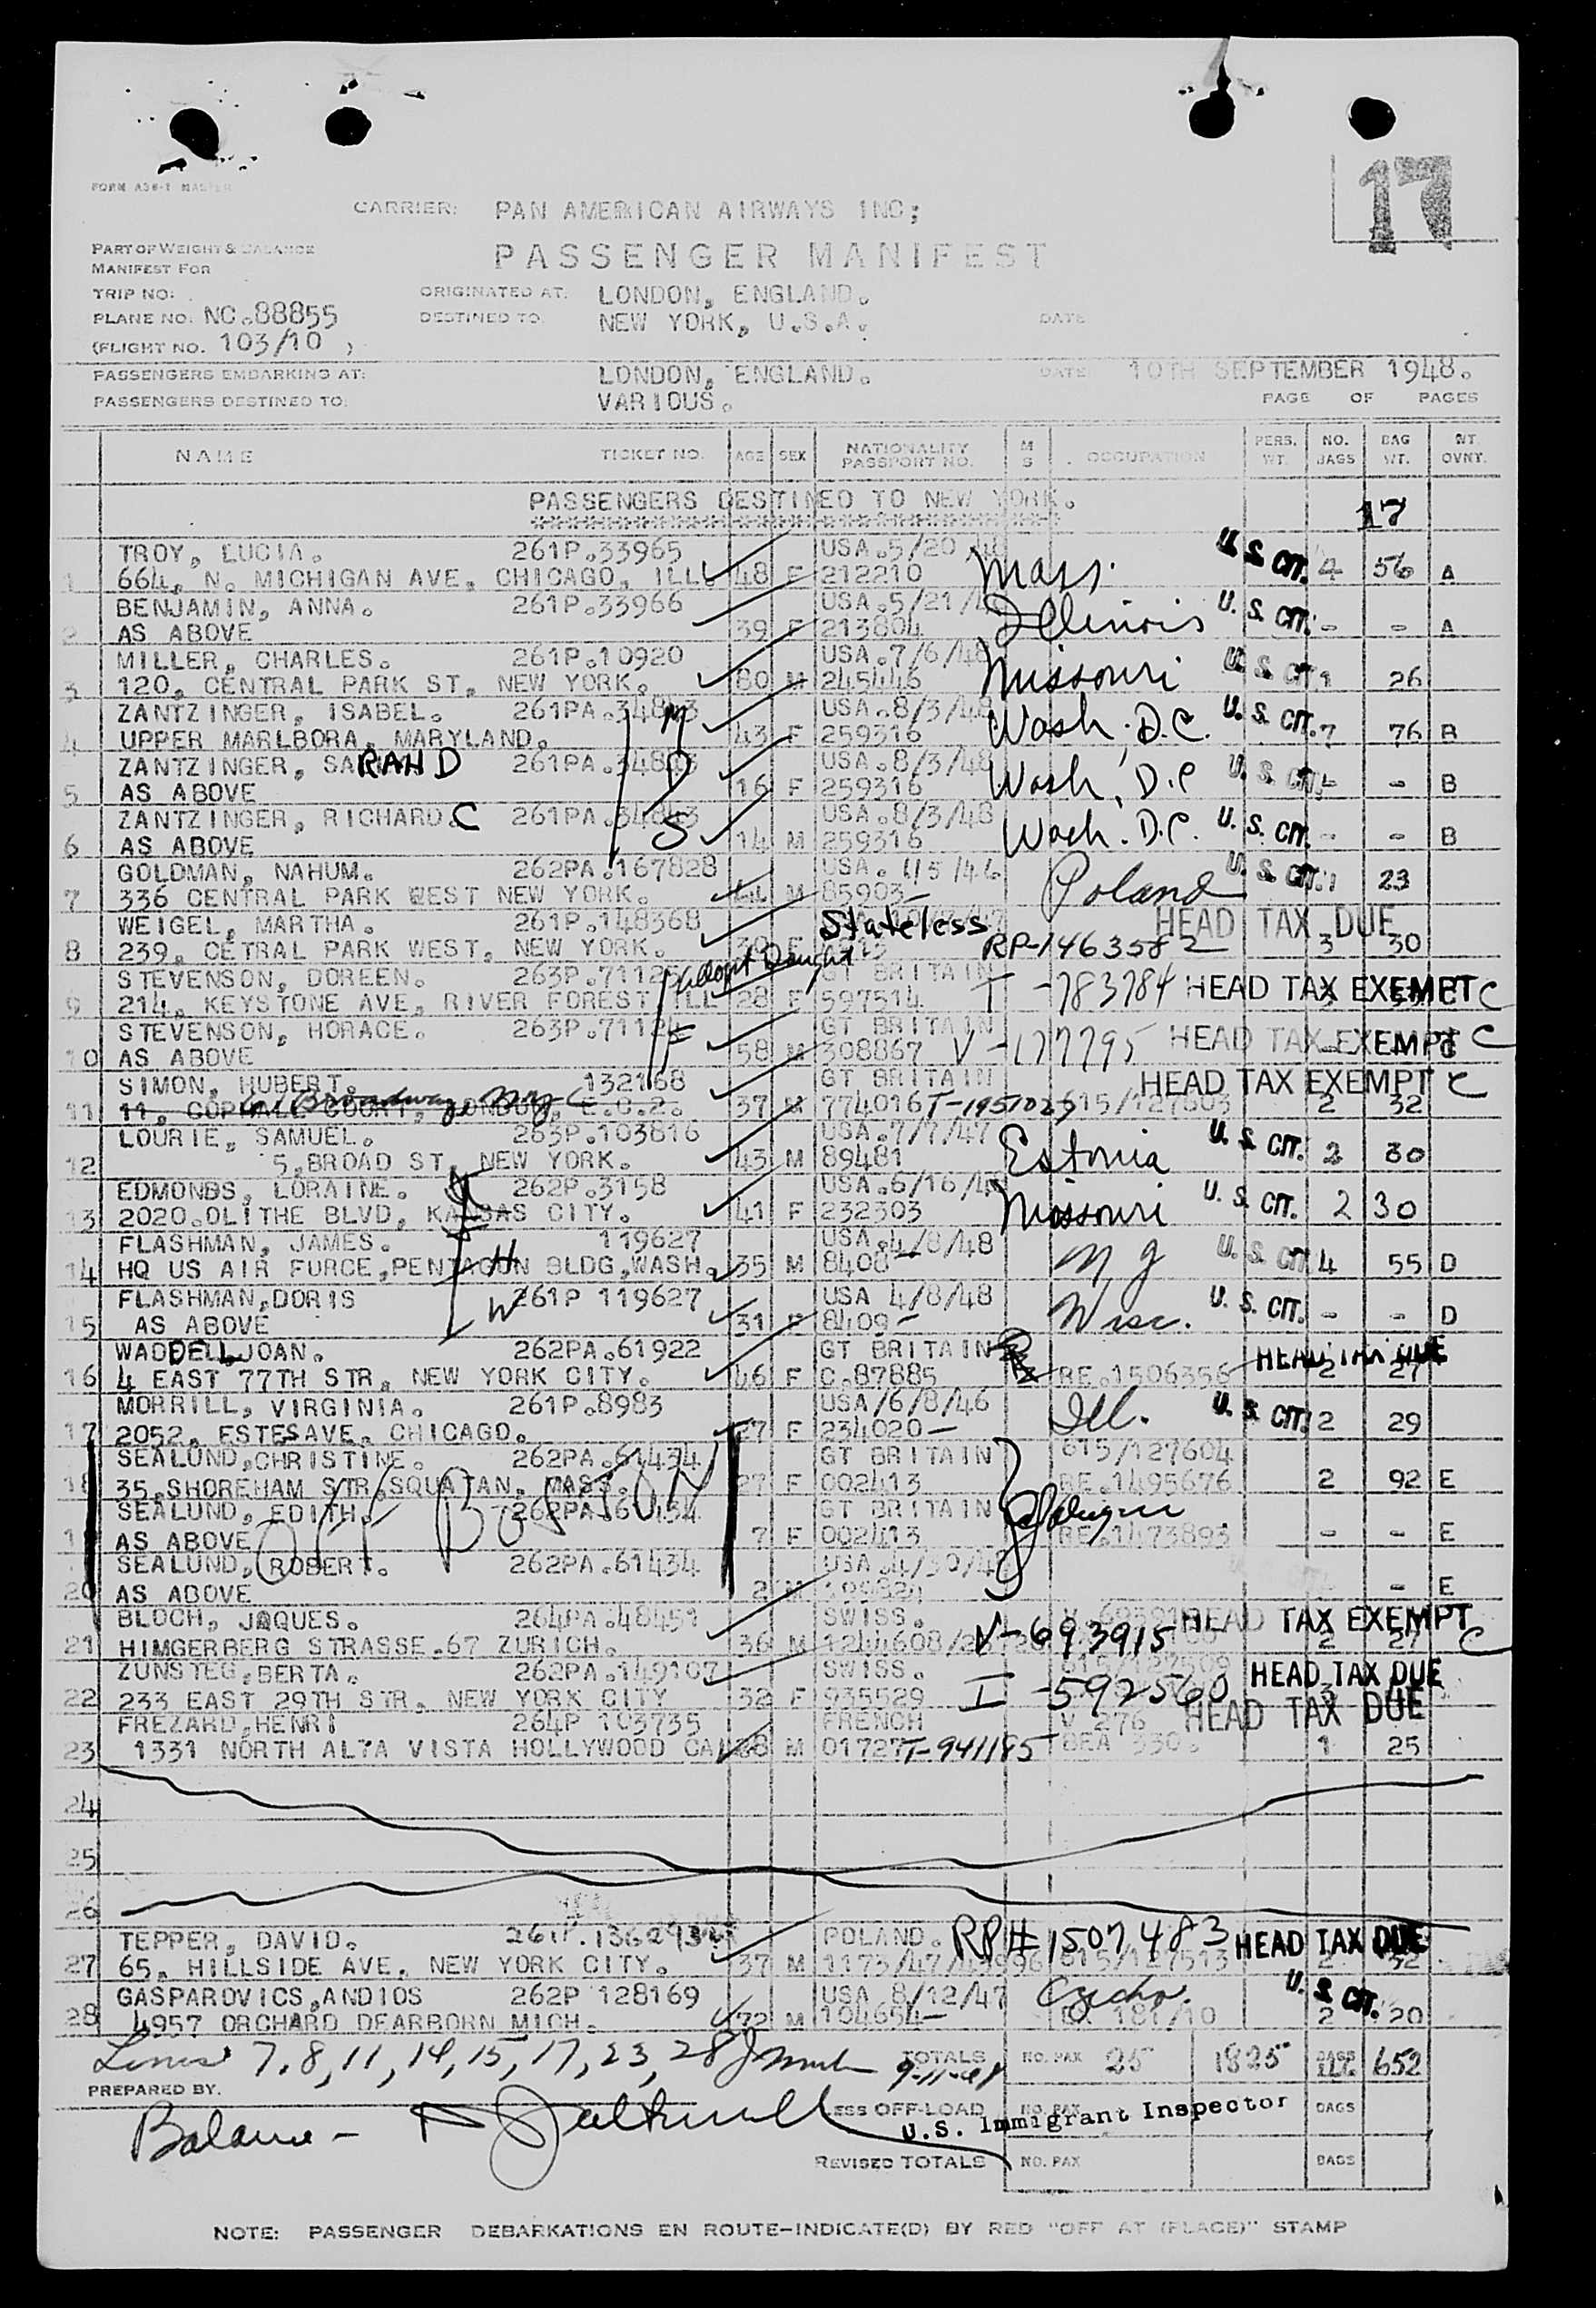 FORM A36-1 MASTER
17
CARRIER: PAN AMERICAN AIRWAYS INC;
PART OF WEIGHT & BALANCE
MANIFEST FOR
PASSENGER MANIFEST
TRIP NO:
ORIGINATED AT: LONDON, ENGLAND.
PLANE NO. NC.88855
DESTINED TO NEW YORK, U.S.A.
DATE
(FLIGHT NO. 103/10 )
PASSENGERS EMBARKING AT: LONDON, ENGLAND. DATE 10TH SEPTEMBER 1948.
PASSENGERS DESTINED TO: VARIOUS. PAGE OF PAGES
NAME TICKET NO. AGE SEX NATIONALITY PASSPORT NO. M S OCCUPATION PERS. WT. NO. BAGS BAG WT. WT. OVNT.
PASSENGERS DESTINED TO NEW YORK.
17
TROY, LUCIA. 261P.33965 USA.5/20 U.S. CIT.
1 664, N. MICHIGAN AVE, CHICAGO, ILL. 48 F 212210 Mass. 4 56 A
BENJAMIN, ANNA. 261P.33966 USA.5/21/ Illinois U.S. CIT.
2 AS ABOVE 39 F 213804 - - A
MILLER, CHARLES. 261P.10920 USA.7/6/48 Missouri U.S. CIT.
3 120, CENTRAL PARK ST, NEW YORK. 80 M 245446 1 26
ZANTZINGER, ISABEL. 261PA.34843 M USA.8/3/48 Wash. D.C. U.S. CIT.
4 UPPER MARLBORA, MARYLAND. 43 F 259316 7 76 B
ZANTZINGER, SARAH D 261PA.34843 D USA.8/3/48 Wash. D.C U.S. CIT.
5 AS ABOVE 16 F 259316 - - B
ZANTZINGER, RICHARD.C 261PA.34843 S USA.8/3/48 Wash. D.C. U.S. CIT.
6 AS ABOVE 14 M 259316 - - B
GOLDMAN, NAHUM. 262PA.167828 USA. Poland U.S. CIT.
7 336 CENTRAL PARK WEST NEW YORK. M 85903- 1 23
WEIGEL, MARTHA. 261P.148368 Stateless HEAD TAX DUE
8 239, CETRAL PARK WEST, NEW YORK. F RP-1463582 3 30
STEVENSON, DOREEN. 263P.7112 Adopt Daught GT BRITAIN T-783784 HEAD TAX EXEMPT C
9 214, KEYSTONE AVE, RIVER FOREST ILL 28 F 597514
STEVENSON, HORACE. 263P.7112 F GT BRITAIN V-177795 HEAD TAX EXEMPT C
10 AS ABOVE 58 M 308867
SIMON, HUBERT. 132168 GT BRITAIN HEAD TAX EXEMPT C
61 Broadway, NYC
11 11, COPTHALL COURT, LONDON, E.C.2. 37 M 774016 T-1951023 615/127503 2 32
LOURIE, SAMUEL. 263P.103816 USA.7/7/47 Estonia U.S. CIT.
12 5,BROAD ST, NEW YORK. 43 M 89481 2 30
EDMONDS, LORAINE. 262P.3158 USA.6/16/48 Missouri U.S. CIT.
13 2020.OLITHE BLVD, KANSAS CITY. 41 F 232303 2 30
FLASHMAN, JAMES. 119627 USA.4/8/48 N J U.S. CIT.
14 HQ US AIR FURCE,PENTAGON BLDG,WASH. H 35 M 8408- 4 55 D
FLASHMAN,DORIS W 261P 119627 USA 4/8/48 Wisc. U.S. CIT.
15 AS ABOVE 31 F 8409- - - D
WADDELL,JOAN. 262PA.61922 GT BRITAIN HEAD TAX DUE
16 4 EAST 77TH STR, NEW YORK CITY. 46 F C.87885 RE.1506356 2 27
MORRILL, VIRGINIA. 261P.8983 USA/6/8/46 Ill. U.S. CIT.
17 2052, ESTES AVE, CHICAGO. 27 F 234020- 2 29
SEALUND,CHRISTINE. 262PA.61434 GT BRITAIN 615/127604
18 35,SHOREHAM STR,SQUATAN, MASS. 27 F 002413 RE.1495676 2 92 E
SEALUND, EDITH. 262PA.61434 GT BRITAIN
Off BOSTON
19 AS ABOVE 7 F 002413 RE.1473893 - - E
SEALUND, ROBERT. 262PA.61434 USA.4/30/4
20 AS ABOVE 2 M - E
BLOCH, JAQUES. 264PA.48451 SWISS. V-693915 HEAD TAX EXEMPT C
21 HIMGERBERG STRASSE.67 ZURICH. 36 M 1244608/ 2 27
ZUNSTEG,BERTA. 262PA.149107 SWISS. 615/127509 HEAD TAX DUE
22 233 EAST 29TH STR, NEW YORK CITY 32 F 935529 I-592560
FREZARD,HENRI 264P 103735 FRENCH V 276 HEAD TAX DUE
23 1331 NORTH ALTA VISTA HOLLYWOOD CAL 38 M 01727 T-941185 BEA 330. 1 25
24
25
26
TEPPER, DAVID. 261P. POLAND. RP# 1507483 HEAD TAX DUE
27 65, HILLSIDE AVE, NEW YORK CITY. 37 M 1173/47/ 615/127513 2
GASPAROVICS,ANDIOS 262P 128169 USA 8/12/47 Czecho. U.S. CIT.
28 4957 ORCHARD DEARBORN MICH. 72 M 104654- 2 20
Lines 7,8,11,14,15,17,23,28 9-11-48 TOTALS NO. PAX 25 1825 BAGS 652
PREPARED BY.
Balance - LESS OFF-LOAD NO. PAX BAGS
U.S. Immigrant Inspector
REVISED TOTALS NO. PAX BAGS
NOTE: PASSENGER DEBARKATIONS EN ROUTE-INDICATE(D) BY RED "OFF AT (PLACE)" STAMP